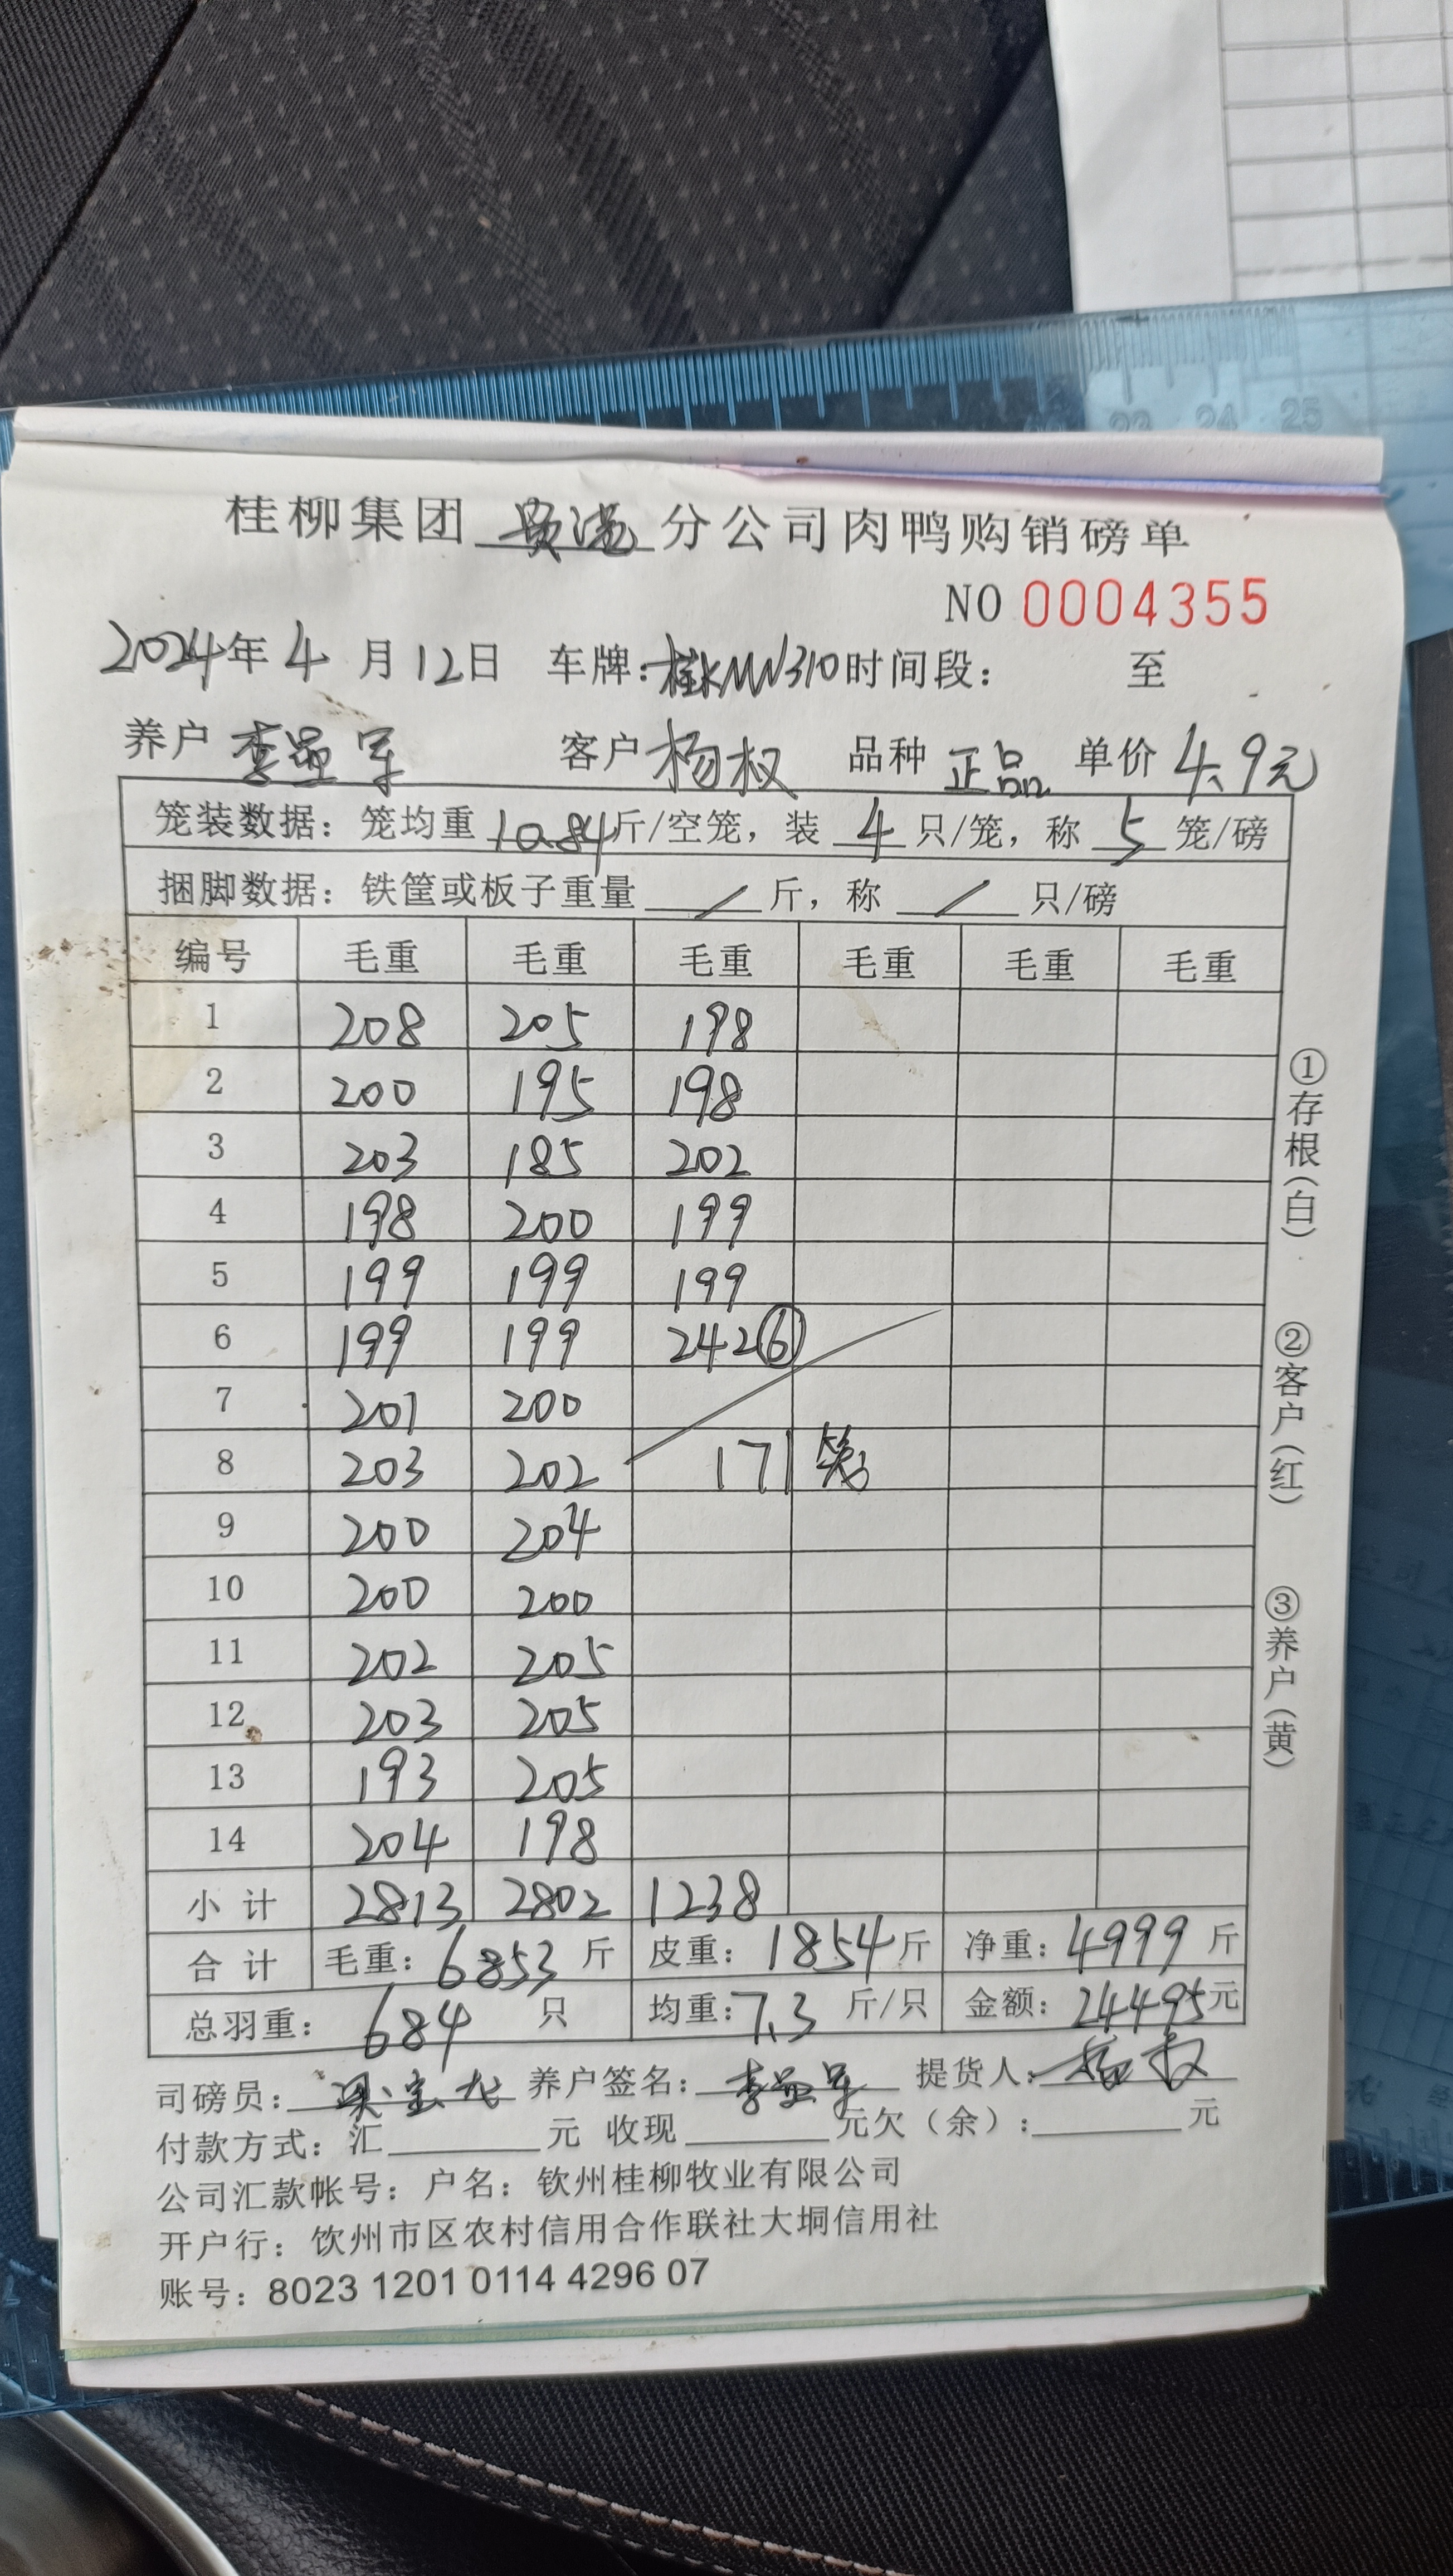 桂柳集团 贵港 分公司肉鸭购销磅单
NO 0004355
2024年 4 月 12日 车牌:桂KMN310 时间段: 至
养户 李亚军 客户 杨权 品种 正品 单价 4.9元
笼装数据: 笼均重 10.84 斤/空笼, 装 4 只/笼, 称 5 笼/磅
捆脚数据: 铁筐或板子重量 / 斤, 称 / 只/磅
编号 毛重 毛重 毛重 毛重 毛重 毛重
1 208 205 198
2 200 195 198
3 203 185 202
4 198 200 199
5 199 199 199
6 199 199 242⑥
7 201 200
8 203 202 171笼
9 200 204
10 200 200
11 202 205
12 203 205
13 193 205
14 204 198
小 计 2813 2802 1238
合 计 毛重: 6853 斤 皮重: 1854 斤 净重: 4999 斤
总羽重: 684 只 均重: 7.3 斤/只 金额: 24495元
司磅员: 养户签名: 李亚军 提货人: 杨权
付款方式: 汇 元 收现 元欠(余): 元
公司汇款帐号: 户名: 钦州桂柳牧业有限公司
开户行: 钦州市区农村信用合作联社大垌信用社
账号: 8023 1201 0114 4296 07
①存根(白)
②客户(红)
③养户(黄)
23 24 25